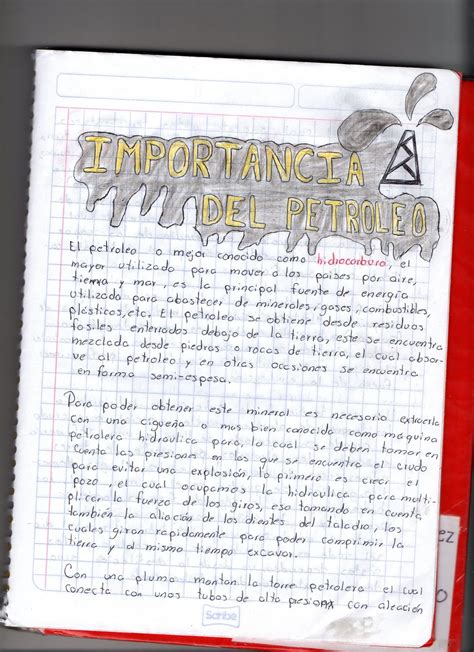 IMPORTANCIA
DEL PETROLEO
El petroleo o mejor conocido como hidrocarburo, el
mayor utilizado para mover a los paises por aire,
tierra y mar, es la principal fuente de energia
utilizado para abastecer de minerales, gases, combustibles,
plásticos, etc. El petroleo se obtiene desde residuos
fosiles enterrados debajo de la tierra, este se encuentra
mezclada desde piedras o rocas de tierra, el cual absor-
ve al petroleo y en otras ocasiones se encuentra
en forma semi-espesa.
Para poder obtener este mineral es necesario extraerla
con una cigueña o mas bien conocido como maquina
petrolera hidraulica para, lo cual se deben tomar en
cuenta las presiones en las que se encuentra el crudo
para evitar una explosión, lo primero es crear el
pozo, el cual ocupamos la hidraulica para multi-
plicar la fuerza de los giros, eso tomando en cuenta
también la aliación de los dientes del taladro, los
cuales giran rapidamente para poder comprimir la
tierra y al mismo tiempo excavar.
Con una pluma montan la torre petrolera el cual
conecta con unos tubos de alta presion con aleación
Scribe
ez
O